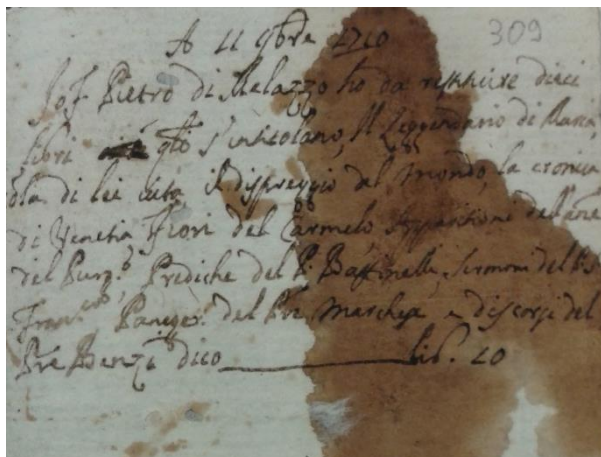 A 11 9bre 1710 309
Io f. Pietro di Melazzo ho da restituire dieci
libri gli s'intitolano, Il Leggendario di Maria,
ola di lei vita, il dispreggio del mondo, la cronica
di Venetia, Fiori del Carmelo, Apparitioni dell'ane
del Purg.o, Prediche del P. Sermoni del P.
Fran.co, Paneg. del Pre Marchese e discorsi del
Pre Benzi dico lib. 10